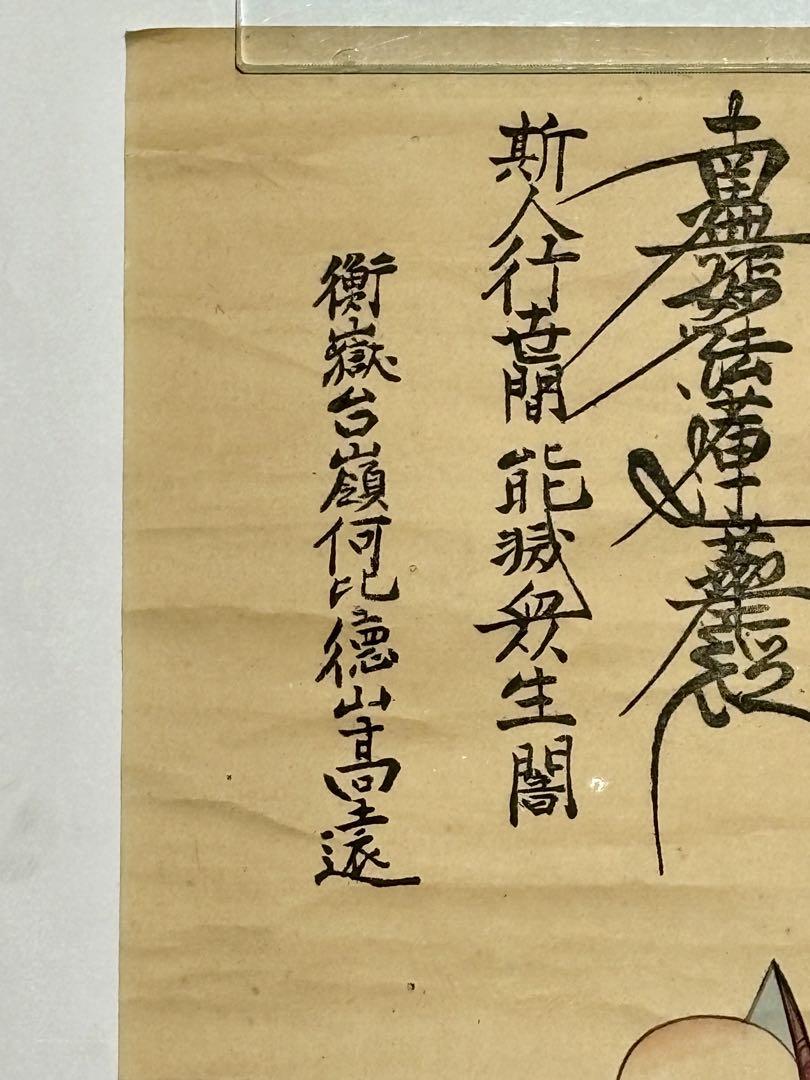 南無妙法蓮華経
斯人行世間能滅衆生闇
衡嶽台嶺何比德山高且遠